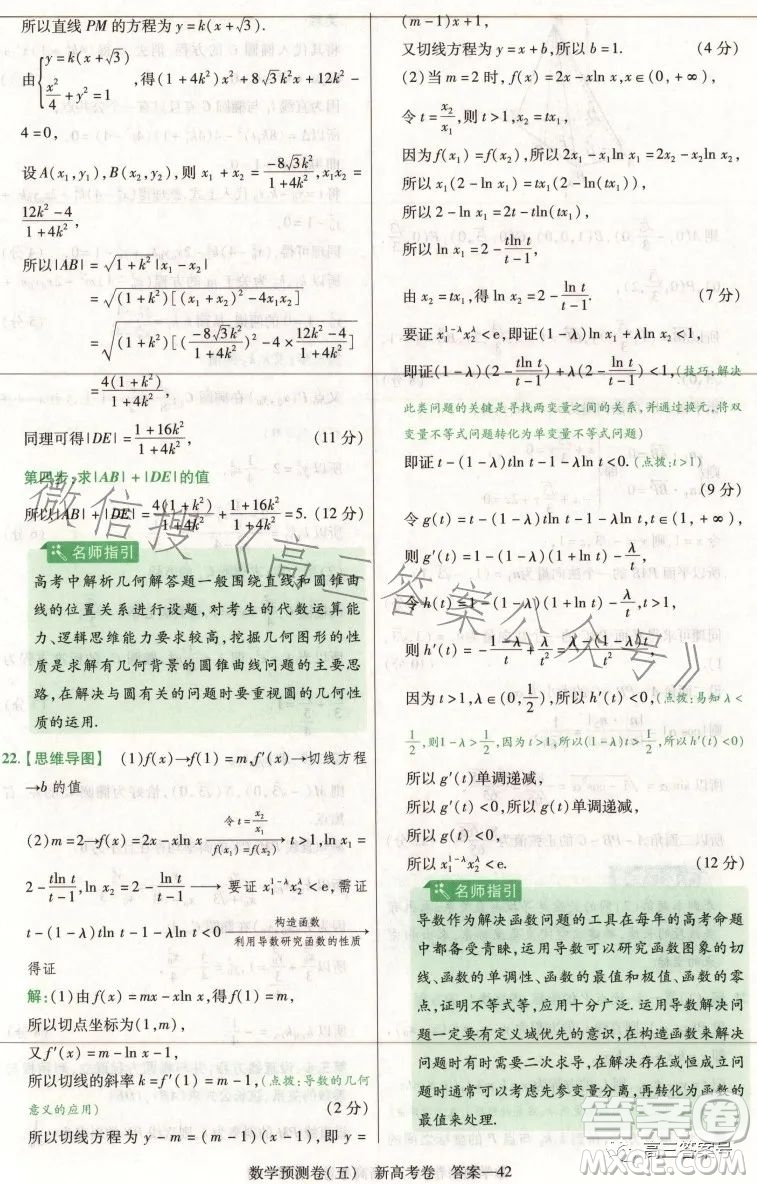 所以直线 PM 的方程为 y=k(x+√3).
由{y=k(x+√3) x²/4+y²=1 ,得(1+4k²)x²+8√3k²x+12k²-
4=0,
设 A(x₁,y₁),B(x₂,y₂),则 x₁+x₂=(-8√3k²)/(1+4k²),x₁x₂=
(12k²-4)/(1+4k²)
所以|AB|=√(1+k²)|x₁-x₂|
=√((1+k²)[(x₁+x₂)²-4x₁x₂])
=√((1+k²)[((-8√3k²)/(1+4k²))²-4×(12k²-4)/(1+4k²)])
=4(1+k²)/(1+4k²),
同理可得|DE|=(1+16k²)/(1+4k²), (11 分)
第四步:求|AB|+|DE|的值
所以|AB|+|DE|=4(1+k²)/(1+4k²)+(1+16k²)/(1+4k²)=5. (12 分)
名师指引
高考中解析几何解答题一般围绕直线和圆锥曲
线的位置关系进行设题,对考生的代数运算能
力、逻辑思维能力要求较高,挖掘几何图形的性
质是求解有几何背景的圆锥曲线问题的主要思
路,在解决与圆有关的问题时要重视圆的几何性
质的运用.
22.【思维导图】 (1)f(x)→f(1)=m,f′(x)→切线方程
→b 的值
(2)m=2→f(x)=2x-xln x 令t=x₂/x₁ f(x₁)=f(x₂) → t>1,ln x₁=
2-tln t/(t-1),ln x₂=2-ln t/(t-1) → 要证 x₁^(1-λ)x₂^λ<e,需证
t-(1-λ)tln t-1-λln t<0 构造函数 利用导数研究函数的性质 →
得证
解:(1)由 f(x)=mx-xln x,得 f(1)=m,
所以切点坐标为(1,m),
又 f′(x)=m-ln x-1,
所以切线的斜率 k=f′(1)=m-1,(点拨:导数的几何
意义的应用) (2 分)
所以切线方程为 y-m=(m-1)(x-1),即 y=
(m-1)x+1,
又切线方程为 y=x+b,所以 b=1. (4 分)
(2)当 m=2 时,f(x)=2x-xln x,x∈(0,+∞),
令 t=x₂/x₁,则 t>1,x₂=tx₁,
因为 f(x₁)=f(x₂),所以 2x₁-x₁ln x₁=2x₂-x₂ln x₂,
所以 x₁(2-ln x₁)=tx₁(2-ln tx₁),
所以 2-ln x₁=2t-tln(tx₁),
所以 ln x₁=2-tln t/(t-1).
由 x₂=tx₁,得 ln x₂=2-ln t/(t-1). (7 分)
要证 x₁^(1-λ)x₂^λ<e,即证(1-λ)ln x₁+λln x₂<1,
即证(1-λ)(2-tln t/(t-1))+λ(2-ln t/(t-1))<1,(技巧:解决
此类问题的关键是寻找两变量之间的关系,并通过换元,将双
变量不等式问题转化为单变量不等式问题)
即证 t-(1-λ)tln t-1-λln t<0.(点拨:t>1)
(9 分)
令 g(t)=t-(1-λ)tln t-1-λln t,t>1,
则 g′(t)=1-(1-λ)(1+ln t)-λ/t,
令 h(t)=1-(1-λ)(1+ln t)-λ/t,t>1,
则 h′(t)=-(1-λ)/t+λ/t²=(λ-(1-λ)t)/t²,
因为 t>1,λ∈(0,1/2),所以 h′(t)<0,(点拨:易知 λ<
1/2,则1-λ>1/2,因为t>1,所以(1-λ)t>1/2,所以h′(t)<0)
所以 g′(t)单调递减,
所以 g′(t)<0,所以 g(t)单调递减,
所以 g(t)<0,
所以 x₁^(1-λ)x₂^λ<e. (12 分)
名师指引
导数作为解决函数问题的工具在每年的高考命题
中都备受青睐,运用导数可以研究函数图象的切
线、函数的单调性、函数的最值和极值、函数的零
点,证明不等式等,应用十分广泛.运用导数解决问
题一定要有定义域优先的意识,在构造函数来解决
问题时有时要二次求导,在解决存在或恒成立问
题时通常可以考虑先参变量分离,再转化为函数的
最值来处理.
数学预测卷(五) 新高考卷 答案—42
微信搜《高三答案公众号》
答案圈
高三答案号